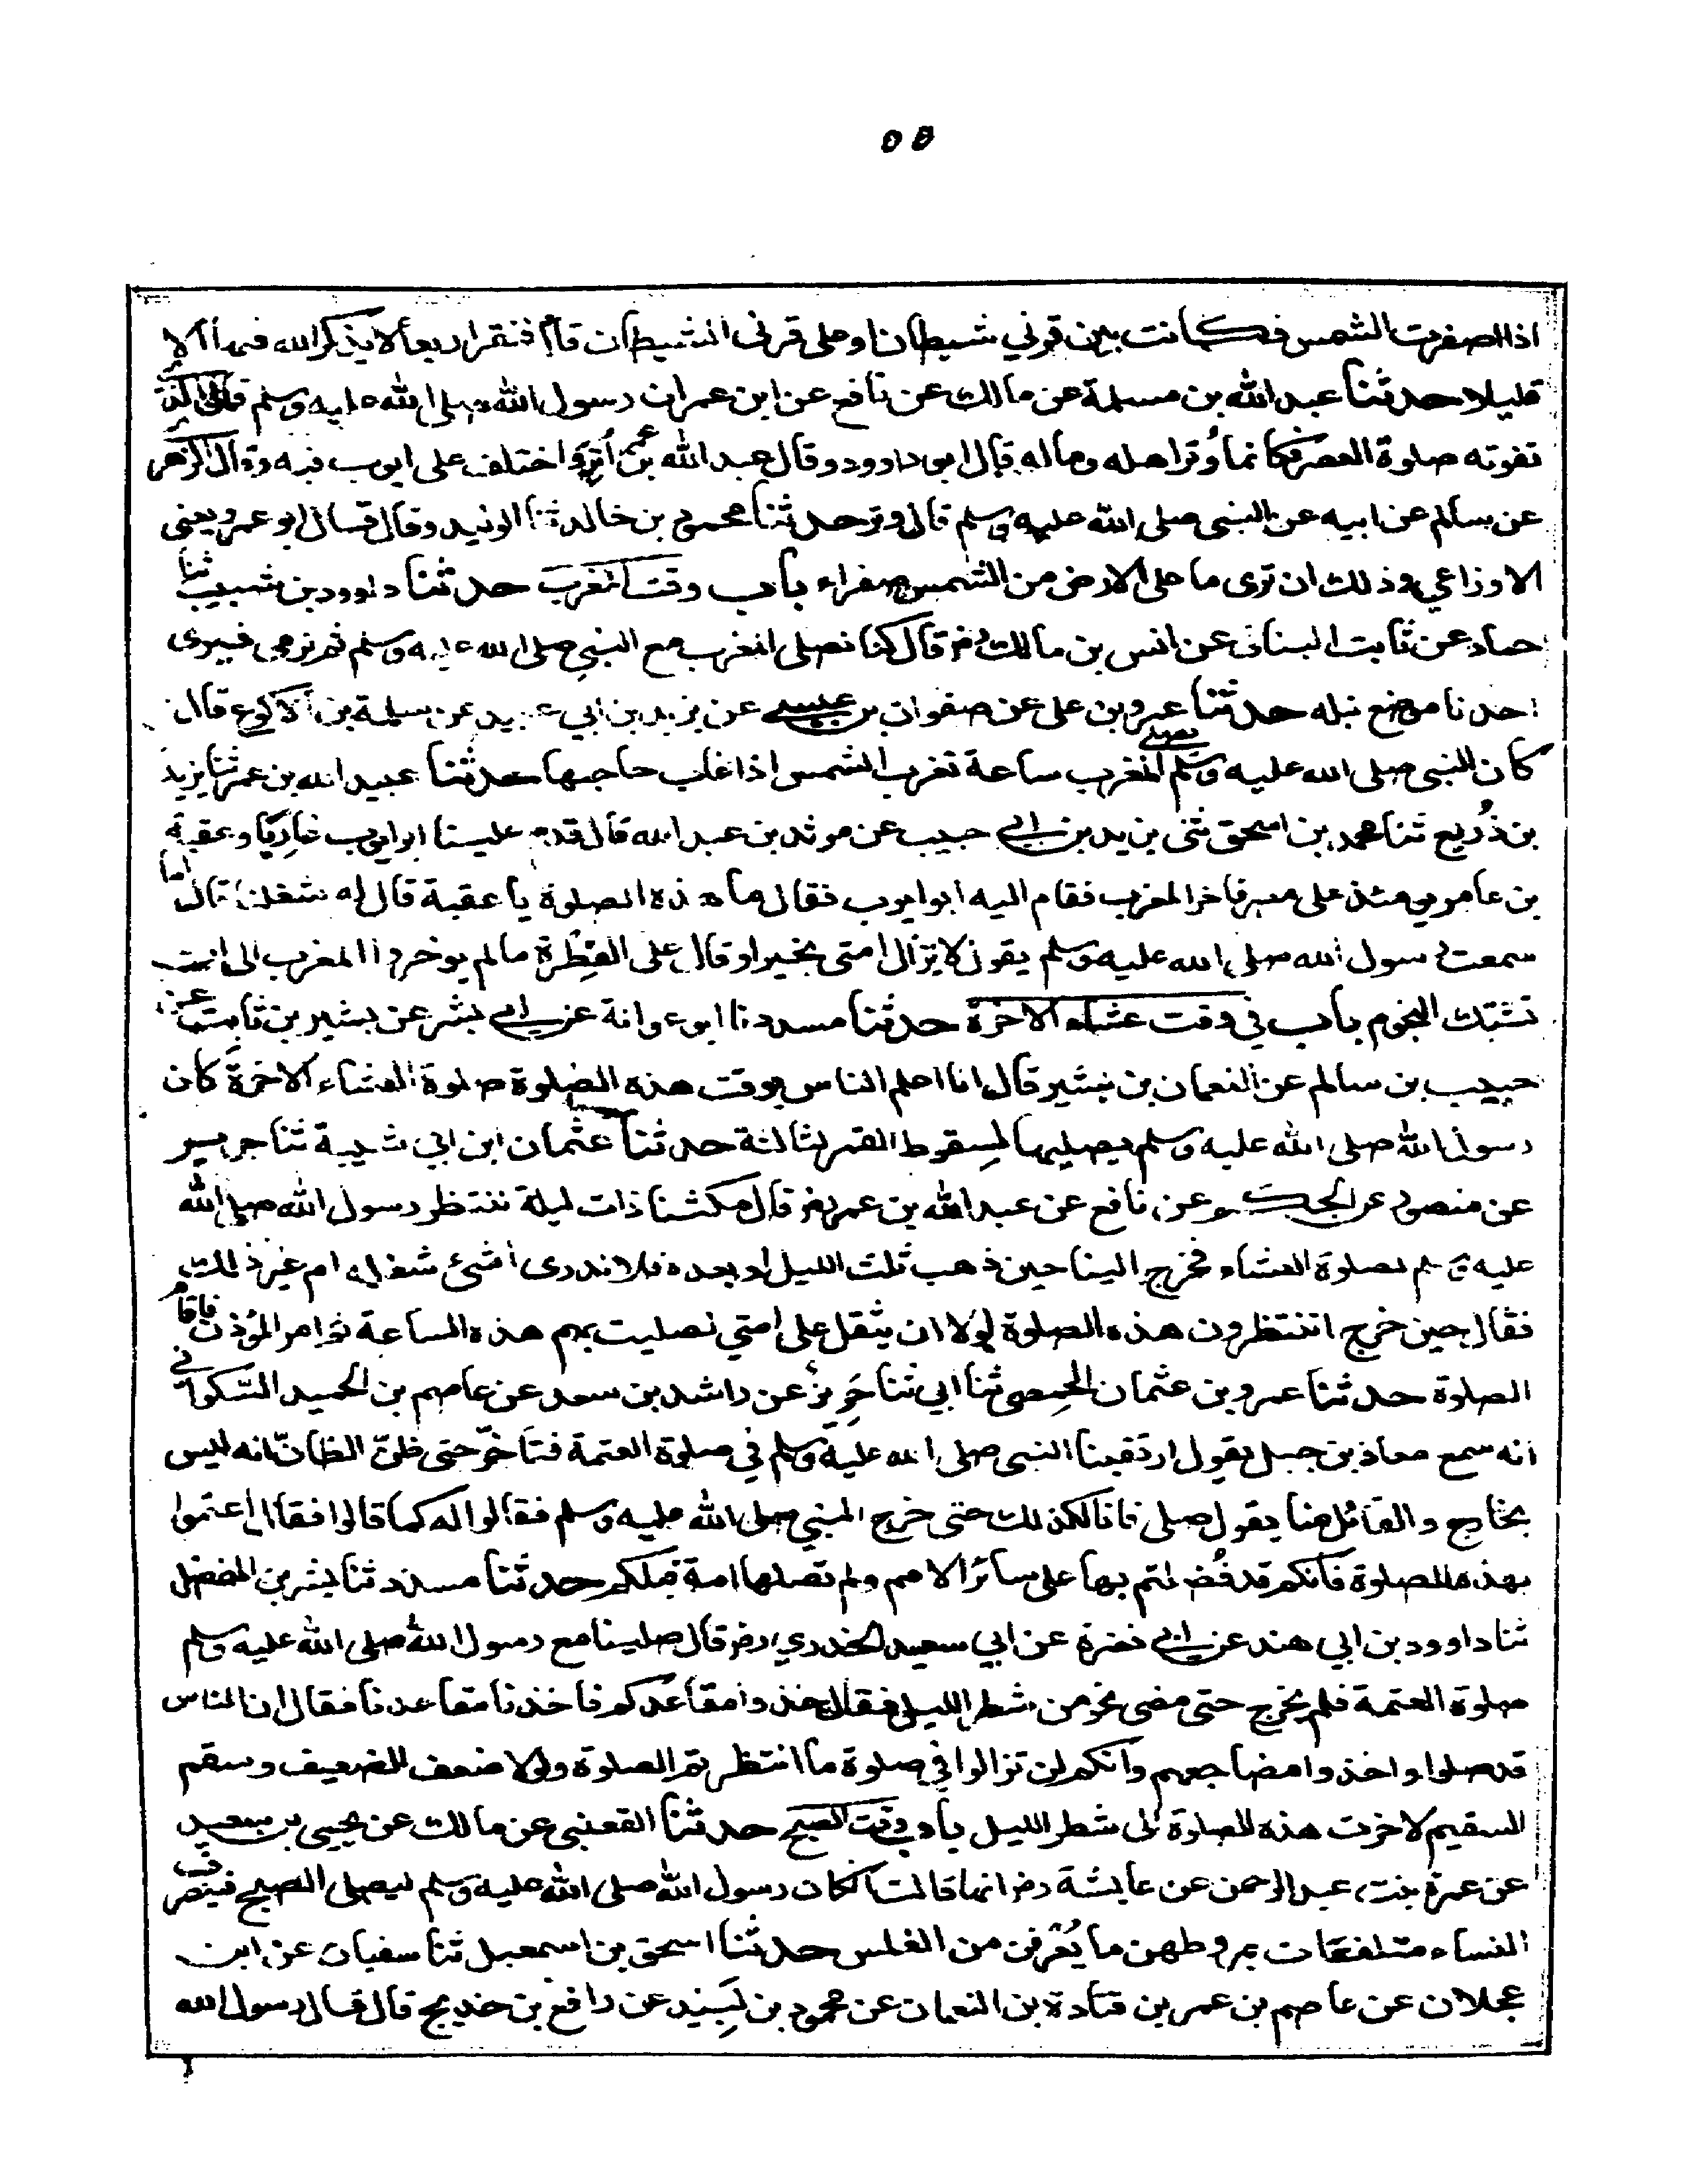 ٥٥
اذا اصفرت الشمس فكانت بين قرني شيطان او على قرني الشيطان قام فنقر اربعا لا يذكر الله فيها الا
قليلا حدثنا عبد الله بن مسلمة عن مالك عن نافع عن ابن عمر ان رسول الله صلى الله عليه وسلم قال الذي
تفوته صلوة العصر فكانما وُتر اهله وماله قال ابو داوود وقال عبد الله بن عمر أُتِرَ واختلف على ايوب فيه وقال الزهري
عن سالم عن ابيه عن النبي صلى الله عليه وسلم قال وتر حدثنا محمود بن خالد ثنا الوليد وقال قال ابو عمرو يعني
الاوزاعي وذلك ان ترى ما على الارض من الشمس صفراء باب وقت المغرب حدثنا داوود بن شبيب ثنا
حماد عن ثابت البناني عن انس بن مالك رض قال كنا نصلي المغرب مع النبي صلى الله عليه وسلم ثم نرمي فيرى
احدنا موضع نبله حدثنا عمرو بن علي عن صفوان بن عيسى عن يزيد بن ابي عبيد عن سلمة بن الاكوع قال
كان النبي صلى الله عليه وسلم يصلي المغرب ساعة تغرب الشمس اذا غاب حاجبها حدثنا عبيد الله بن عمر ثنا يزيد
بن زُريع ثنا محمد بن اسحق ثني يزيد بن ابي حبيب عن مرثد بن عبد الله قال قدم علينا ابو ايوب غازيا وعقبة
بن عامر يومئذ على مصر فاخر المغرب فقام اليه ابو ايوب فقال ما هذه الصلوة يا عقبة قال له شغلنا قال اما
سمعت رسول الله صلى الله عليه وسلم يقول لا تزال امتي بخير او قال على الفِطْرة ما لم يوخروا المغرب الى ان
تشتبك النجوم باب في وقت عشاء الاخرة حدثنا مسدد نا ابو عوانة عن ابي بشر عن بشير بن ثابت عن
حبيب بن سالم عن النعمان بن بشير قال انا اعلم الناس بوقت هذه الصلوة صلوة العشاء الاخرة كان
رسول الله صلى الله عليه وسلم يصليها لسقوط القمر لثالثة حدثنا عثمان ابن ابي شيبة ثنا جرير
عن منصور عن الحكم عن نافع عن عبد الله بن عمر رض قال مكثنا ذات ليلة ننتظر رسول الله صلى الله
عليه وسلم لصلوة العشاء فخرج الينا حين ذهب ثلث الليل او بعده فلا ندري أشئ شغله ام غير ذلك
فقال حين خرج اتنتظرون هذه الصلوة لولا ان يثقل على امتي لصليت بهم هذه الساعة ثم امر المؤذن فاقام
الصلوة حدثنا عمرو بن عثمان الحِمصي ثنا ابي ثنا حَرِيز عن راشد بن سعد عن عاصم بن الحميد السَّكوني
انه سمع معاذ بن جبل يقول ارتقبنا النبي صلى الله عليه وسلم في صلوة العتمة فتأخّر حتى ظنّ الظانّ انه ليس
بخارج والقائل منا يقول صلى فانا لكذلك حتى خرج النبي صلى الله عليه وسلم فقالوا له كما قالوا فقال اعتموا
بهذه الصلوة فانكم قد فُضلتم بها على سائر الامم ولم تصلها امة قبلكم حدثنا مسدد ثنا بشر بن المفضل
ثنا داوود بن ابي هند عن ابي نضرة عن ابي سعيد الخدري رض قال صلينا مع رسول الله صلى الله عليه وسلم
صلوة العتمة فلم يخرج حتى مضى نحو من شطر الليل فقال خذوا مقاعدكم فاخذنا مقاعدنا فقال ان الناس
قد صلوا واخذوا مضاجعهم وانكم لن تزالوا في صلوة ما انتظرتم الصلوة ولولا ضعف الضعيف وسقم
السقيم لاخرت هذه الصلوة الى شطر الليل باب وقت الصبح حدثنا القعنبي عن مالك عن يحيى بن سعيد
عن عمرة بنت عبد الرحمن عن عايشة رض انها قالت ان كان رسول الله صلى الله عليه وسلم ليصلي الصبح فينصرف
النساء متلفعات بمروطهن ما يُعْرفن من الغلس حدثنا اسحق بن اسمعيل ثنا سفيان عن ابن
عجلان عن عاصم بن عمر بن قتادة بن النعمان عن محمود بن لَبِيد عن رافع بن خديج قال قال رسول الله